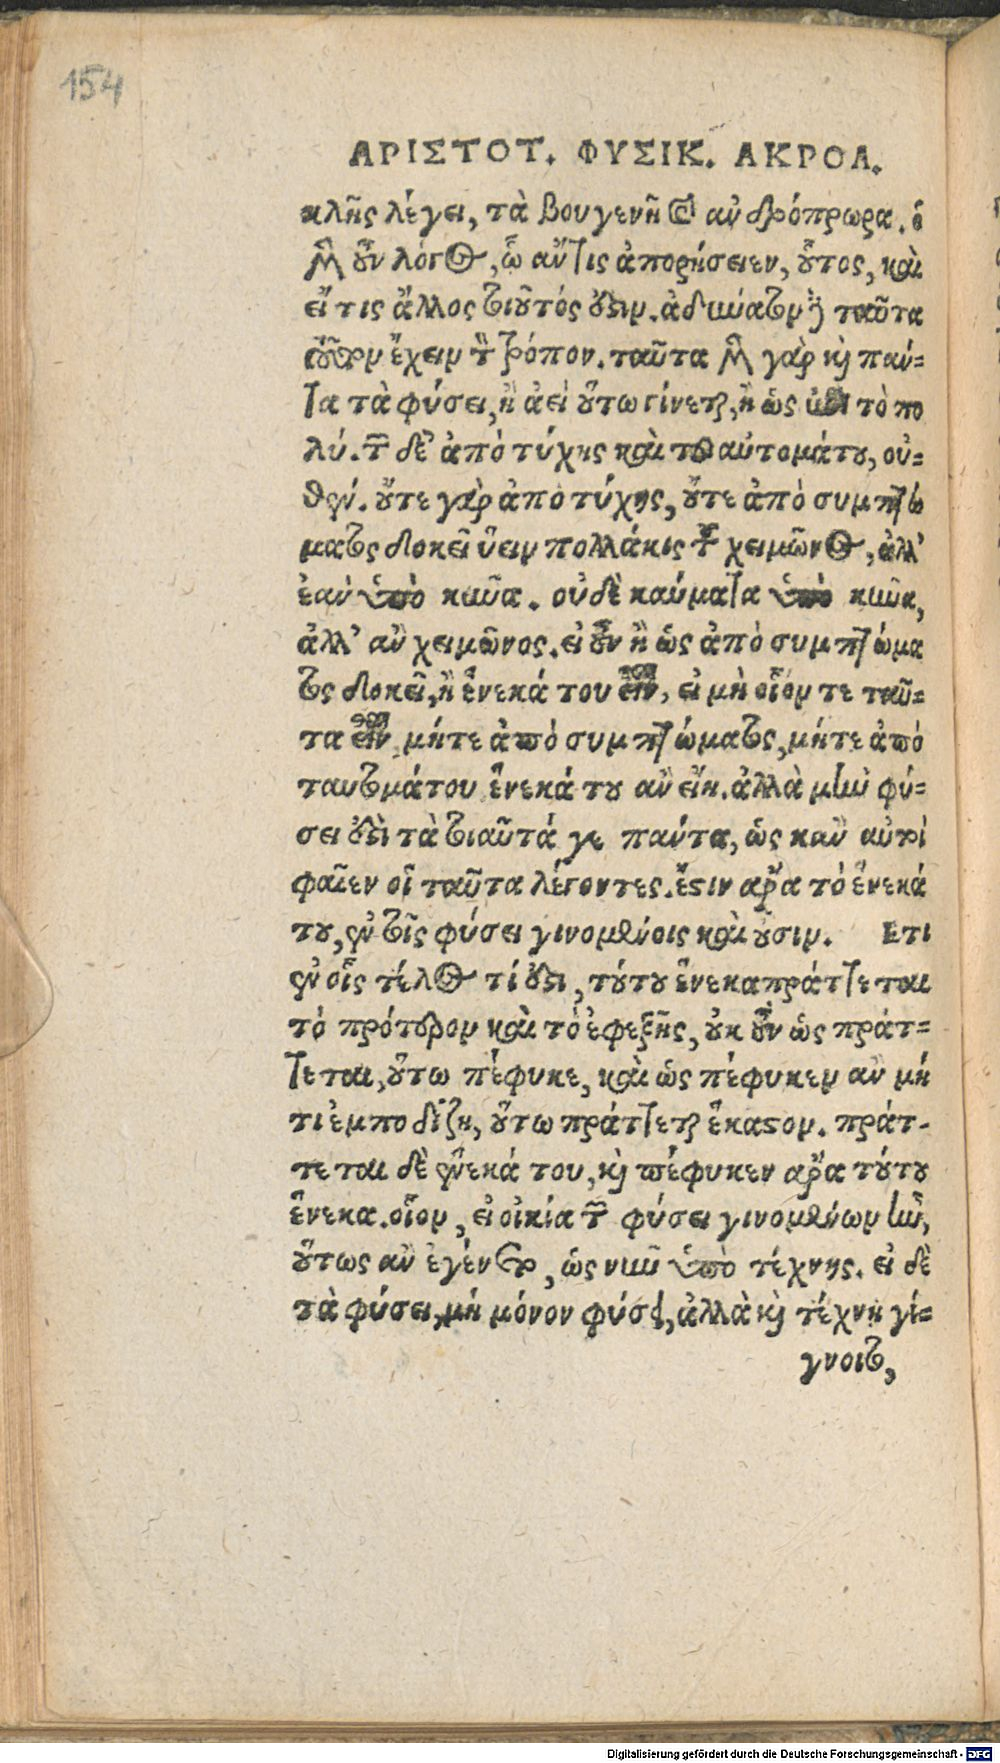 154
ΑΡΙΣΤΟΤ. ΦΥΣΙΚ. ΑΚΡΟΑ.
κλῆς λέγει, τὰ βουγενῆ καὶ ἀνδρόπρωρα. ὁ
μὲν οὖν λόγος, ᾧ ἄν τις ἀπορήσειεν, οὗτος, καὶ
εἴ τις ἄλλος τοιοῦτός ὅςιν. ἀδύνατον δὲ ταῦτα
τοῦτον ἔχειν τὸν τρόπον. ταῦτα μὲν γὰρ καὶ πάν-
τα τὰ φύσει, ἢ ἀεὶ οὕτω γίνεται, ἢ ὡς ἐπὶ τὸ πο
λύ. τῶν δὲ ἀπὸ τύχης καὶ τοῦ αὐτομάτου, οὐ-
θέν. οὔτε γὰρ ἀπὸ τύχης, οὔτε ἀπὸ συμπτώ
ματος δοκεῖ ὕειν πολλάκις τοῦ χειμῶνος, ἀλλ’
ἐὰν ὑπὸ κύνα. οὐδὲ καύματα ὑπὸ κύνα,
ἀλλ’ ἂν χειμῶνος. εἰ οὖν ἢ ὡς ἀπὸ συμπτώμα
τος δοκεῖ, ἢ ἕνεκά του εἶναι, εἰ μὴ οἷόν τε ταῦ-
τα εἶναι μήτε ἀπὸ συμπτώματος, μήτε ἀπὸ
ταυτομάτου ἕνεκά του ἂν εἴη. ἀλλὰ μὴν φύ-
σει ἐςὶ τὰ τοιαῦτά γε πάντα, ὡς κἂν αὐτοὶ
φαῖεν οἱ ταῦτα λέγοντες. ἔςιν ἄρα τὸ ἕνεκά
του, ἐν τοῖς φύσει γινομένοις καὶ οὖσιν. Ετι
ἐν οἷς τέλος τί ἐςι, τούτου ἕνεκα πράττεται
τὸ πρότερον καὶ τὸ ἐφεξῆς, οὐκ οὖν ὡς πράτ-
τεται, οὕτω πέφυκε, καὶ ὡς πέφυκεν ἂν μή
τι ἐμποδίζῃ, οὕτω πράττεται ἕκαςον. πράτ-
τεται δὲ ἕνεκά του, καὶ πέφυκεν ἄρα τούτου
ἕνεκα. οἷον, εἰ οἰκία τῶν φύσει γινομένων ἦν,
οὕτως ἂν ἐγένετο, ὡς νῦν ὑπὸ τέχνης. εἰ δὲ
τὰ φύσει, μὴ μόνον φύσει, ἀλλὰ καὶ τέχνῃ γί-
γνοιτο,
Digitalisierung gefördert durch die Deutsche Forschungsgemeinschaft - DFG